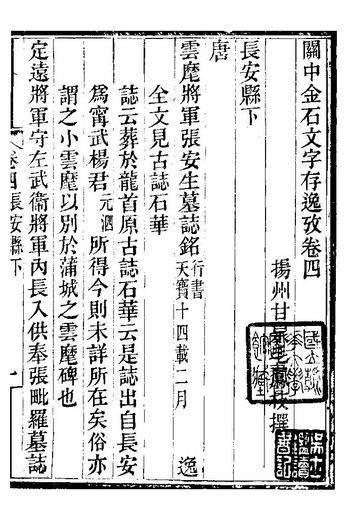 關中金石文字存逸攷卷四
揚州甘泉毛鳳枝撰
長安縣下
唐
雲麾將軍張安生墓誌銘 行書 天寶十四載二月 逸
全文見古誌石華
誌云葬於龍首原古誌石華云是誌出自長安
爲甯武楊君元泗所得今則未詳所在矣俗亦
謂之小雲麾以別於蒲城之雲麾碑也
定遠將軍守左武衞將軍內長入供奉張毗羅墓誌
卷四長安縣下 一